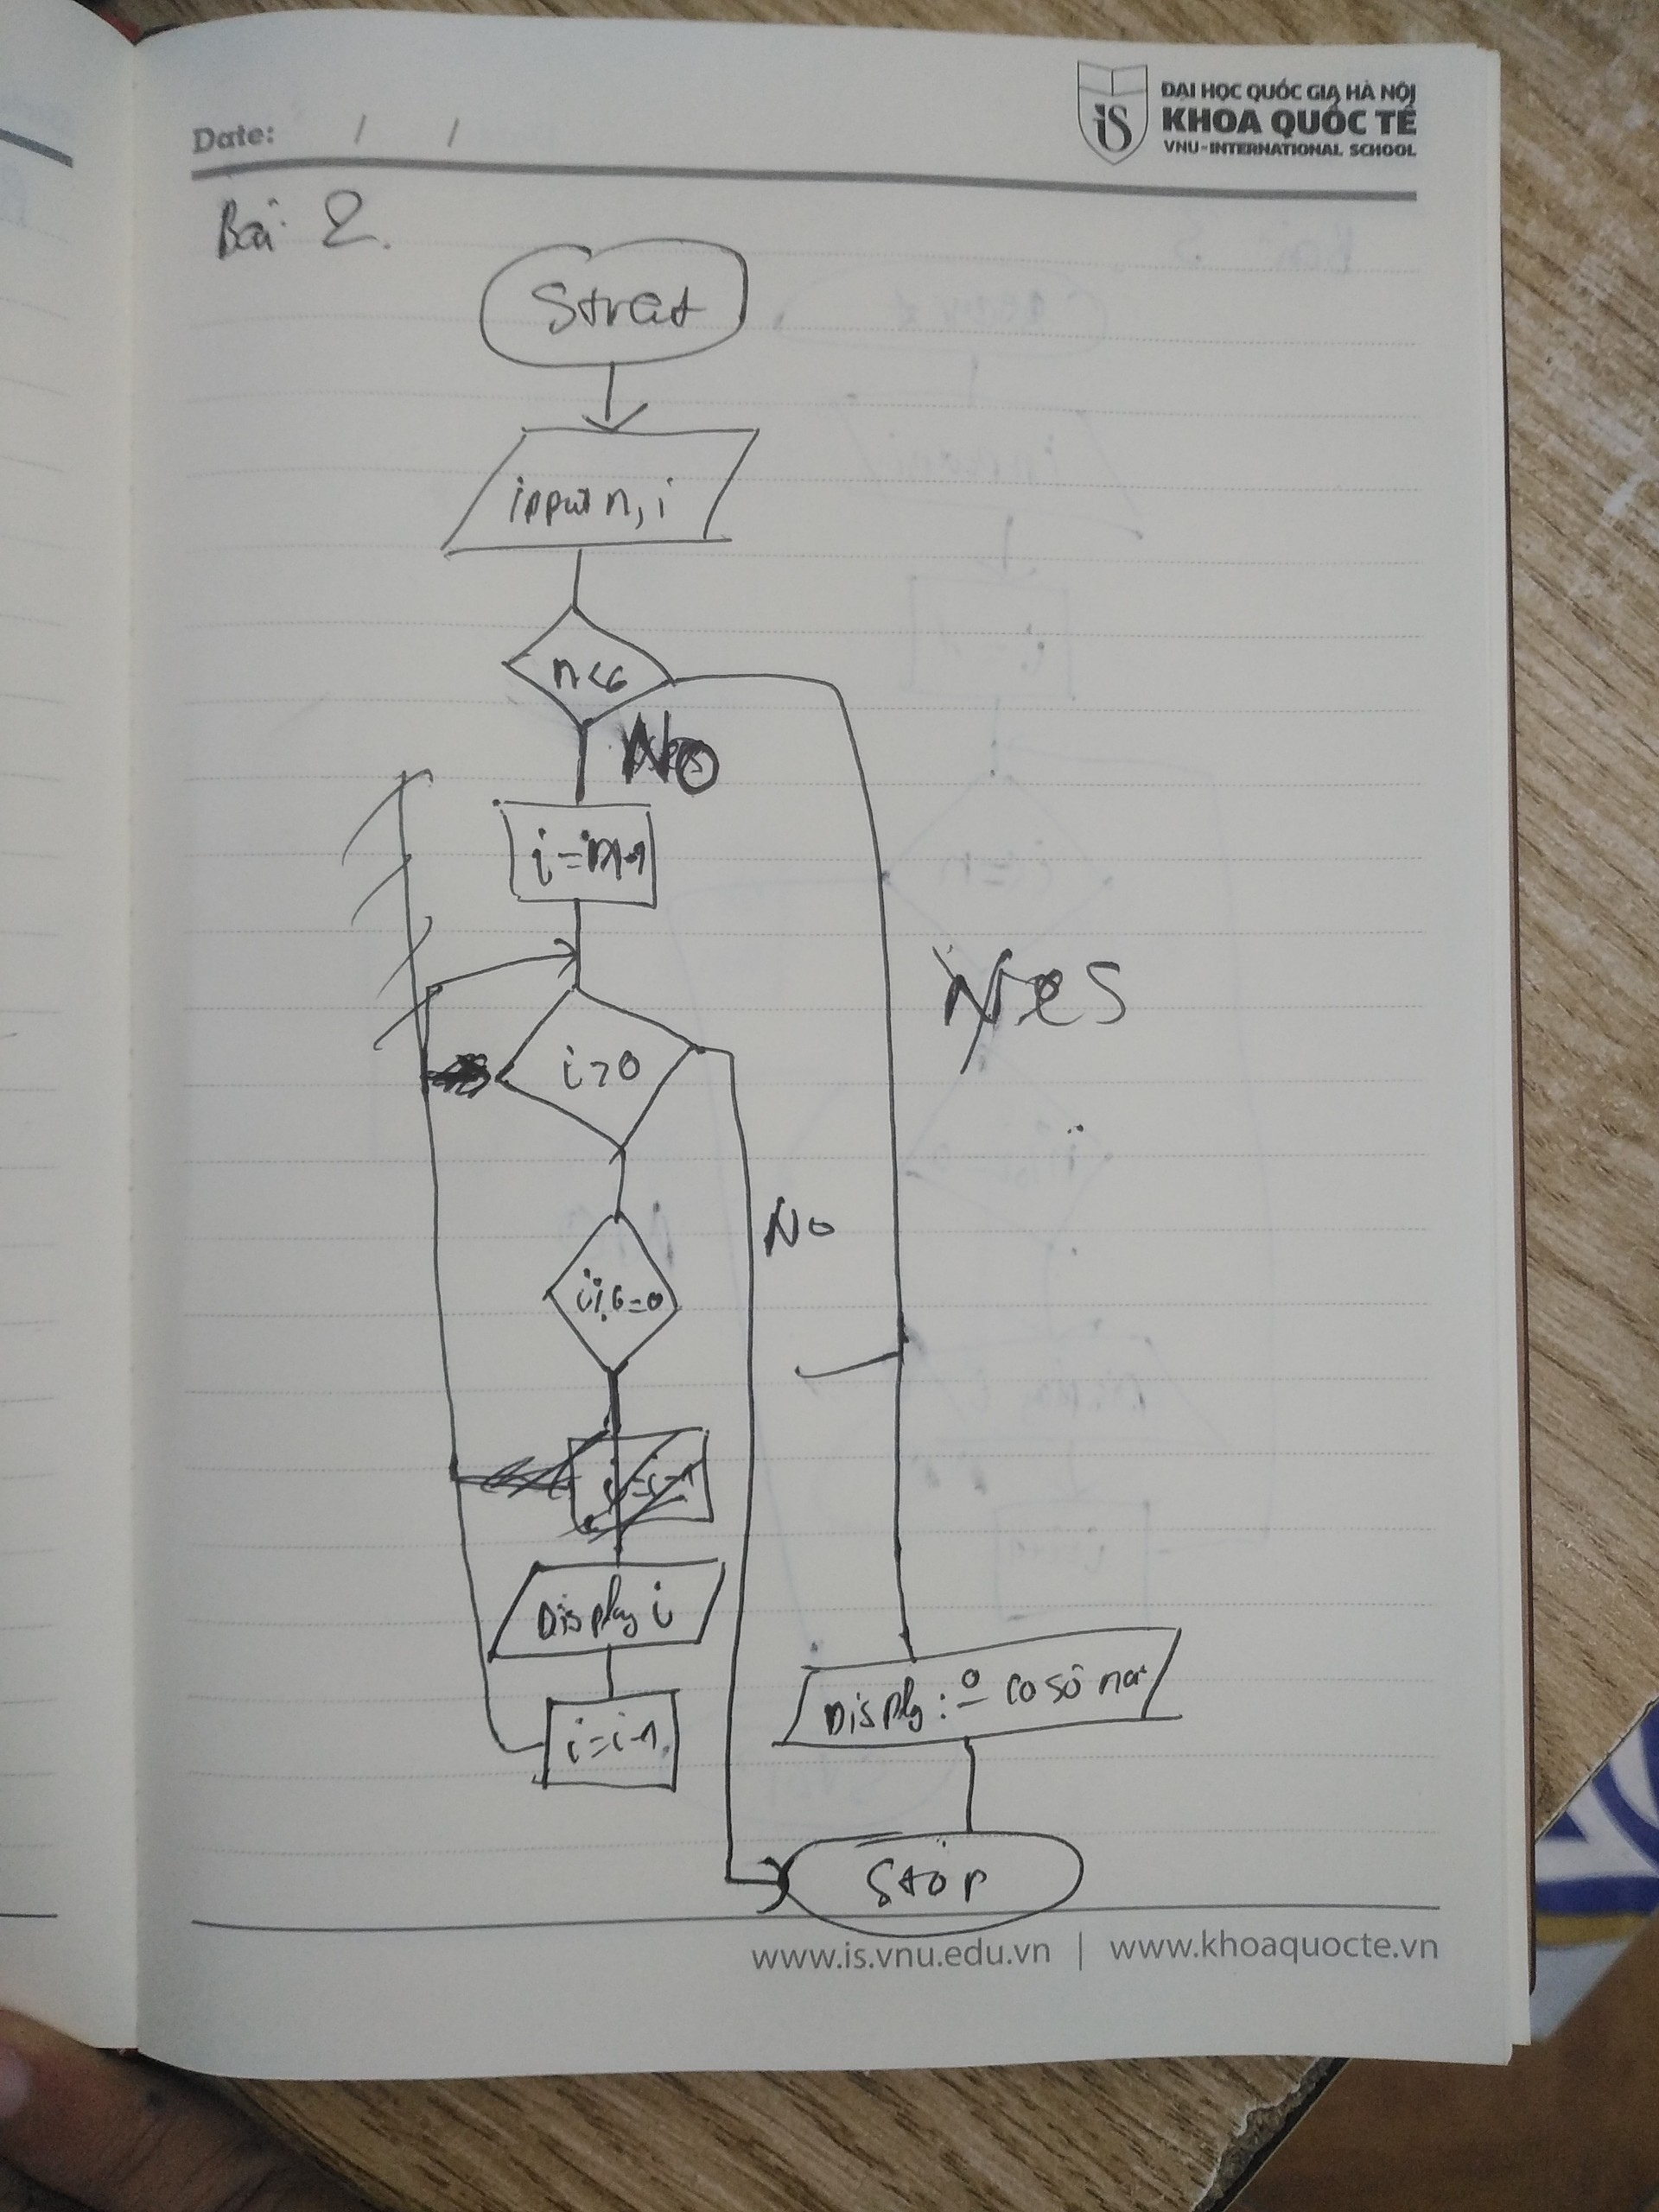 Date: / /
ĐẠI HỌC QUỐC GIA HÀ NỘI
KHOA QUỐC TẾ
VNU-INTERNATIONAL SCHOOL
iS
Bài 2.
Strat
input n, i
n<6
No
i>0
Yes
No
i%6=0
Display i
i=i-1
Disply: o có số nào
Stop
www.is.vnu.edu.vn | www.khoaquocte.vn